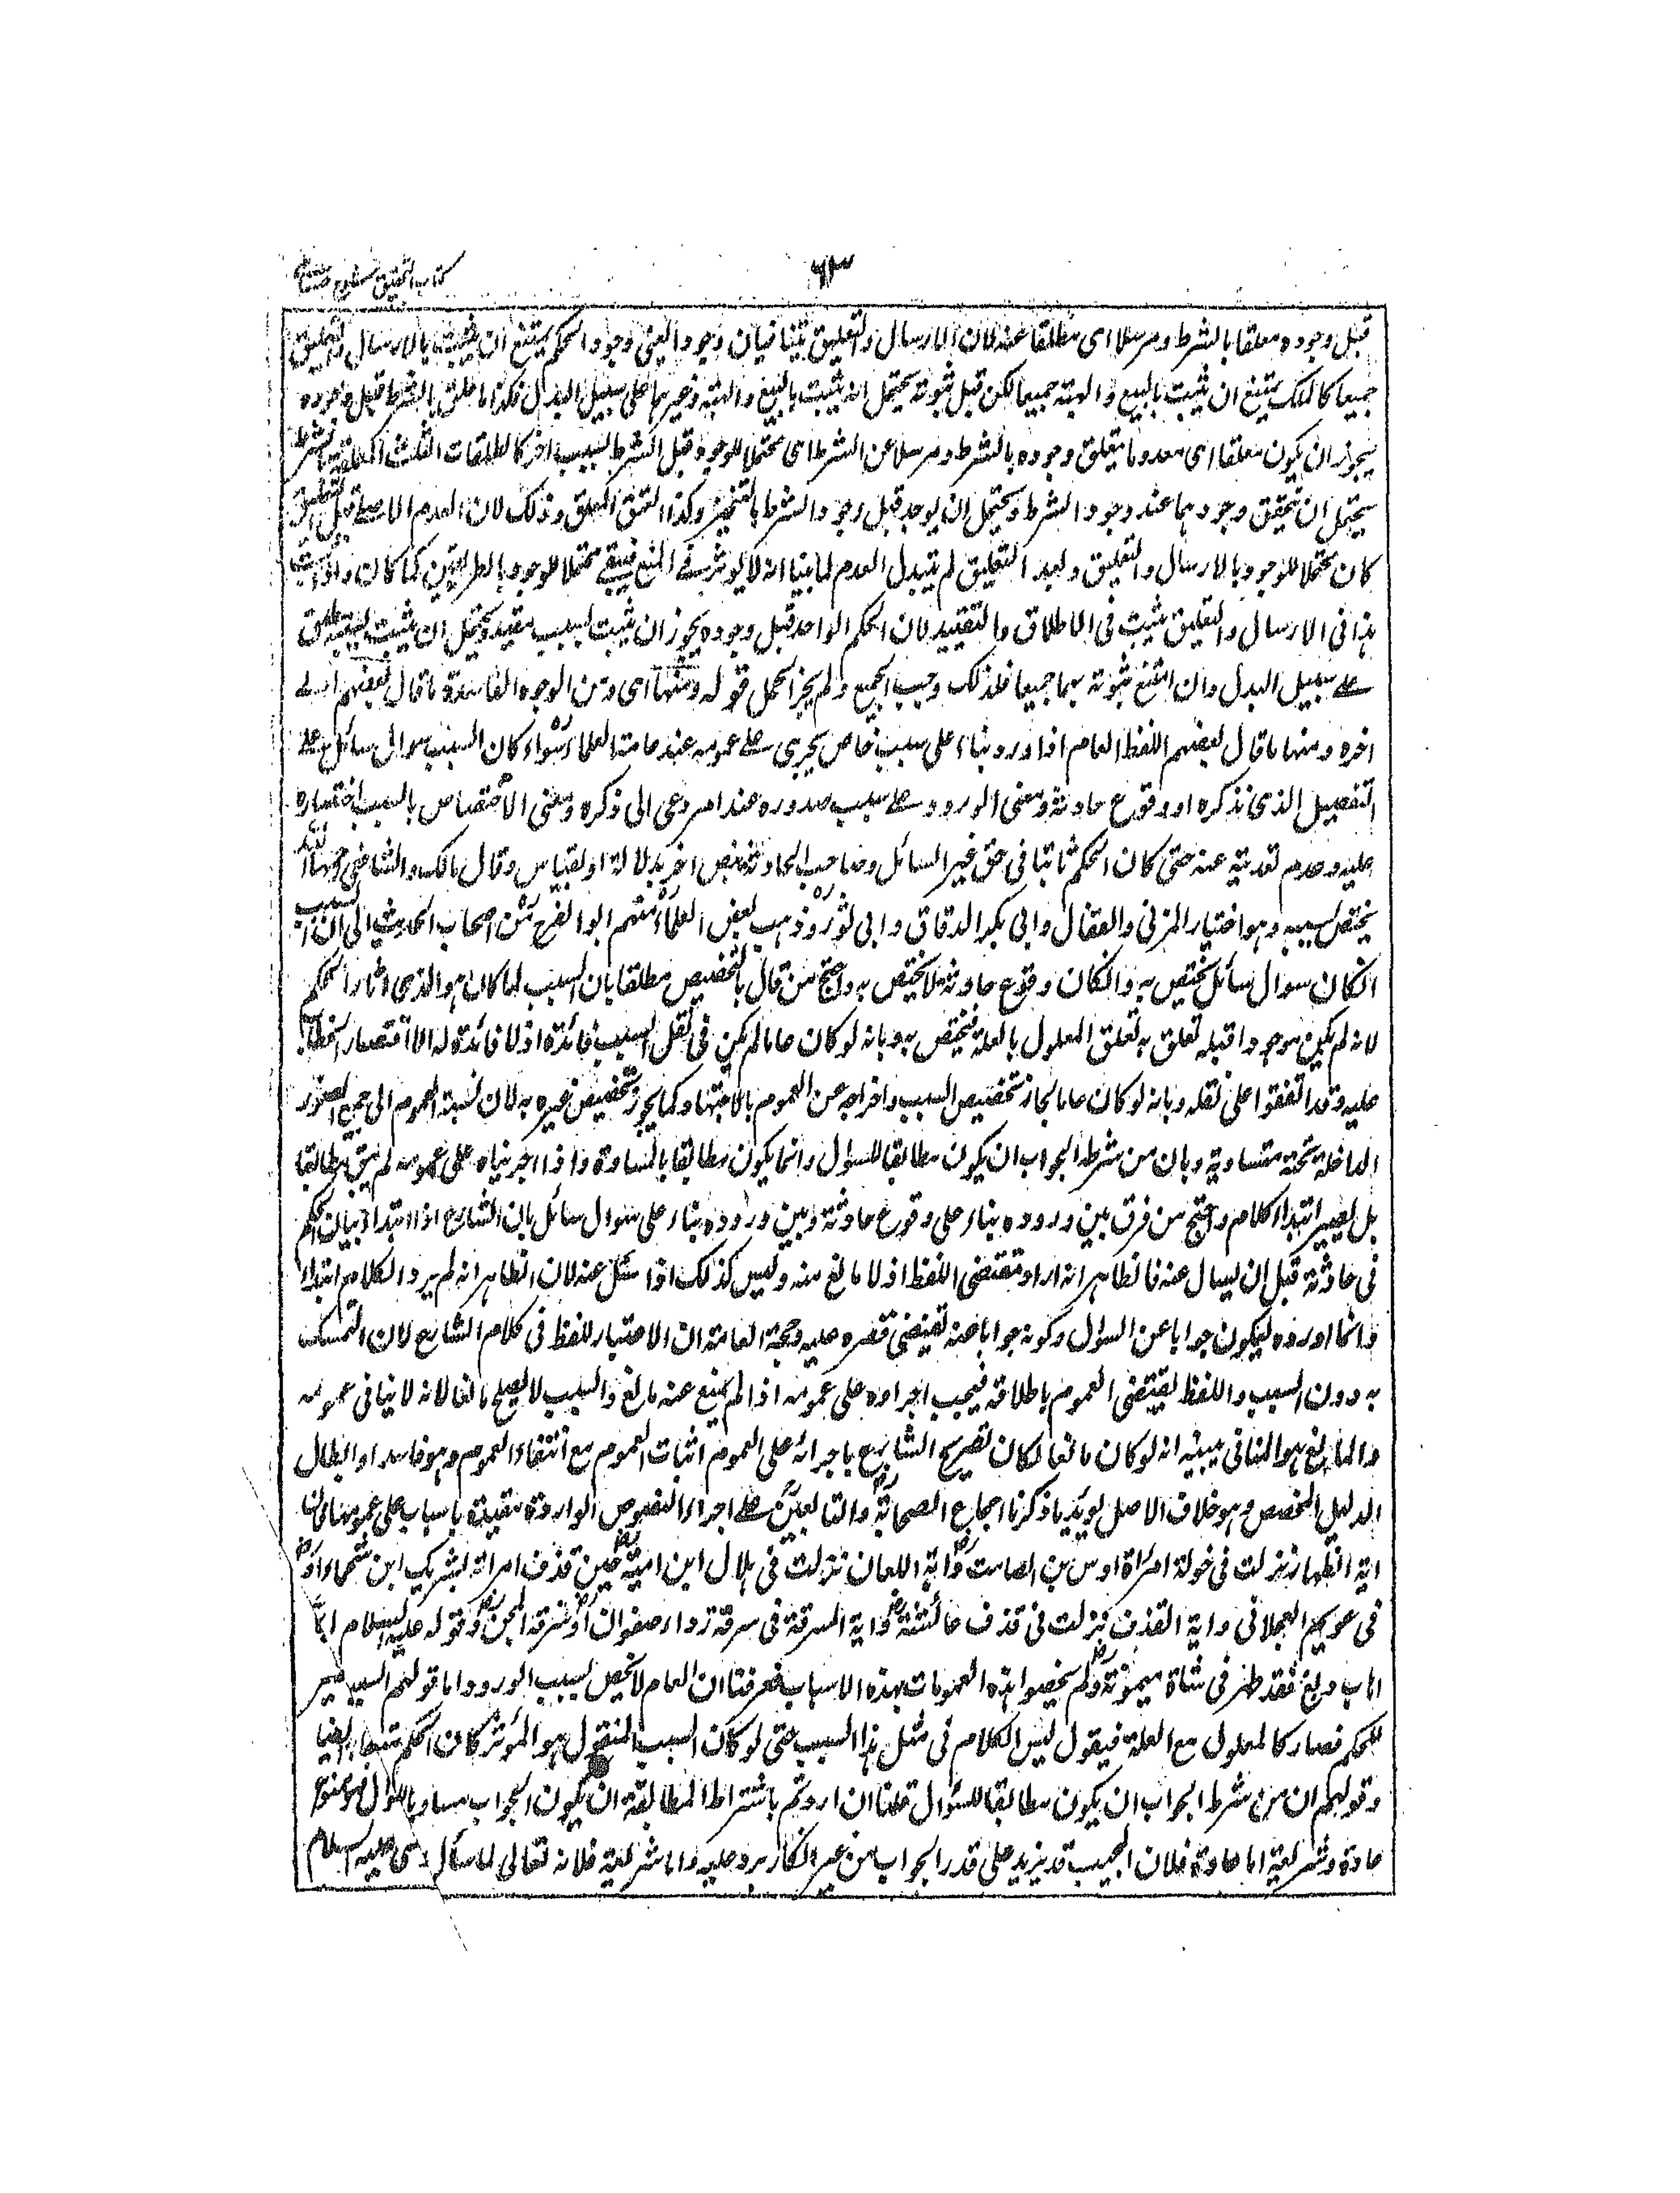 ٦٣
كتاب التحقيق شرح
قبل وجوده معلقا بالشرط ومرسلا اى مطلقا عنه لان الارسال والتعليق يتنافيان وجودا يعنى وجود الحكم يمتنع ان يثبت بالارسال والتعليق
جميعا كالملك يمتنع ان يثبت بالبيع والهبة جميعا لكن قبل ثبوته يحتمل انه يثبت بالبيع والهبة وغيرهما على سبيل البدل فكذا ما علق بالشرط قبل وجوده
يجوز ان يكون معلقا اى معدوما يتعلق وجوده بالشرط ومرسلا عن الشرط اى محتملا للوجود قبل الشرط بسبب اخر كالطلقات الثلث المعلقة بالشرط
يحتمل ان يتحقق وجودهما عند وجود الشرط ويحتمل ان يوجد قبل وجود الشرط بالتنجيز وكذا العتق المعلق وذلك لان العدم الاصلے قبل التعليق
كان محتملا للوجود بالارسال والتعليق وبعد التعليق لم يتبدل العدم لما بينا انه لا يوثر فے المنع فيبقے محتملا للوجود بالطريقين كما كان واذا ثبت
هذا فى الارسال والتعليق يثبت فى الاطلاق والتقييد لان الحكم الواحد قبل وجوده يجوز ان يثبت بسبب مقيد ويحتمل ان يثبت بسبب مطلق
علے سبيل البدل وان امتنع ثبوته بهما جميعا فلذلك وجب الجمع ولم يجز الحمل قوله ومنها اى ومن الوجوه الفاسدة ما قال بعضهم الے
اخره ومنها ما قال بعضهم اللفظ العام اذا ورد بناء على سبب خاص يجرى علے عمومه عند عامة العلماء سواء كان السبب سوال سائل علے
التفصيل الذى نذكره او وقوع حادثة ومعنى الورود علے سبب صدوره عند امر دعى الى ذكره ومعنى الاختصاص بالسبب اقتصاره
عليه وعدم تعديته عنه حتى كان الحكم ثابتا فى حق غير السائل وصاحب الحادثة بنص اخر بدلالة او بقياس وقال مالك والشافعى رحمهما الله
يختص بسببه وهو اختيار المزنى والقفال وابى بكر الدقاق وابى ثور وذهب بعض العلماء منهم ابو الفرج من اصحاب الحديث الى ان السبب
انكان سوال سائل يختص به وانكان وقوع حادثة لا يختص به واحتج من قال بالتخصيص مطلقا بان السبب لما كان هو الذى اثار الحكم
لانه لم يكن موجودا قبله تعلق به تعلق المعلول بالعلة فيختص به وبانه لو كان عاما لم يكن فى نقل السبب فائدة اذ لا فائدة له الا اقتصار الخطاب
عليه وقد اتفقوا على نقله وبانه لو كان عاما لجاز تخصيص السبب واخراجه عن العموم بالاجتهاد كما يجوز تخصيص غيره به لان نسبة العموم الى جميع الصور
الداخلة تحته متساوية وبان من شرط الجواب ان يكون مطابقا للسؤال وانما يكون مطابقا بالمساوة واذا اجريناه على عمومه لم يبق مطابقا
بل يصير ابتداء كلام واحتج من فرق بين وروده بناء على وقوع حادثة وبين وروده بناء على سوال سائل بان الشارع اذا ابتداء بيان الحكم
فى حادثة قبل ان يسال عنه فالظاهر انه اراد مقتضى اللفظ اذ لا مانع منه وليس كذلك اذا سئل عنه لان الظاهر انه لم يرد الكلام ابتداء
وانما اورده ليكون جوابا عن السؤال وكونه جوابا عنه يقتضى قصره عليه وحجة العامة ان الاعتبار للفظ فى كلام الشارع لان التمسك
به دون السبب واللفظ يقتضى العموم باطلاقه فيجب اجراوه على عمومه اذا لم يمنع عنه مانع والسبب لا يصلح مانعا لانه لا ينافى عمومه
والمانع هو المنافى يبينه انه لو كان مانعا لكان تصريح الشارع باجرائه على العموم اثبات العموم مع انتفاء العموم وهو فاسد او ابطال
الدليل المخصص وهو خلاف الاصل يويد ما ذكرنا اجماع الصحابة والتابعين علے اجراء النصوص الواردة مقيدة باسباب على عمومها فان
اية الظهار نزلت فى خولة امراة اوس بن الصامت واية اللعان نزلت فى هلال ابن امية حين قذف امراته بشريك ابن سحماء او
فى عويمر العجلانى واية القذف نزلت فى قذف عائشة واية السرقة فى سرقة رداء صفوان او سرقة المجن وقوله عليه السلام ايما
اهاب دبغ فقد طهر فى شاة ميمونة ولم يخصوا هذه العمومات بهذه الاسباب فعرفنا ان العام لا يختص بسبب الورود واما قولهم السبب مثير
للحكم فصار كالمعلول مع العلة فيقول ليس الكلام فى مثل هذا السبب حتى لو كان السبب المنقول هو المؤثر كان الحكم متعلقا به ايضا
وقولهم ان من شرط الجواب ان يكون مطابقا للسؤال قلنا ان اردتم باشتراط المطابقة ان يكون الجواب مساويا للسؤال فممنوع
عادة وشريعة اما عادة فلان المجيب قد يزيد على قدر الجواب من غير انكار يرد عليه واما شريعة فلانه تعالى لما سأل موسى عليه السلام